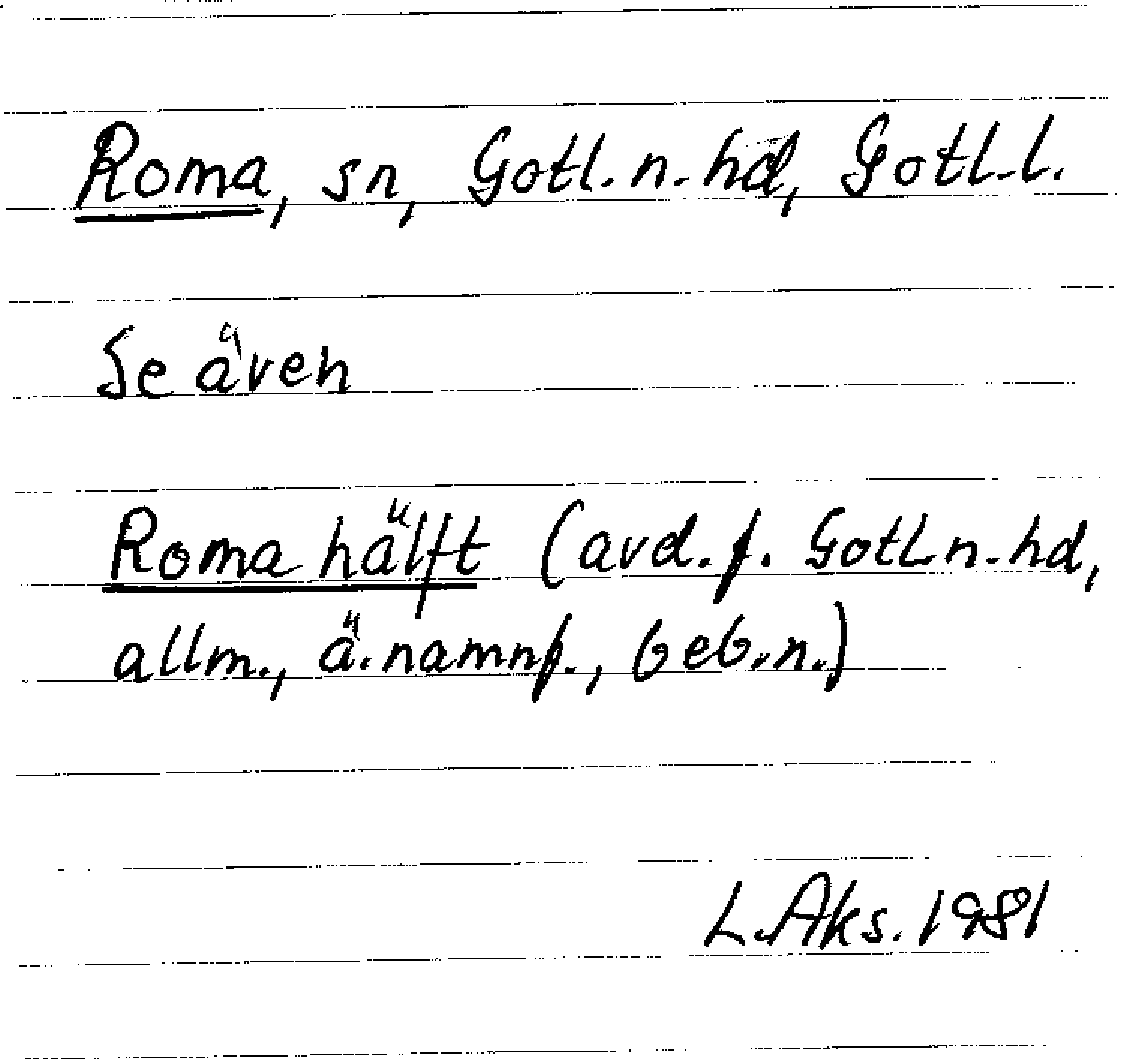 Roma, sn, Gotl. n. hd, Gotl. l.
Se även
Roma hälft (avd. f. Gotl. n. hd,
allm., ä. namnf., beb. n.)
L. Aks. 1981